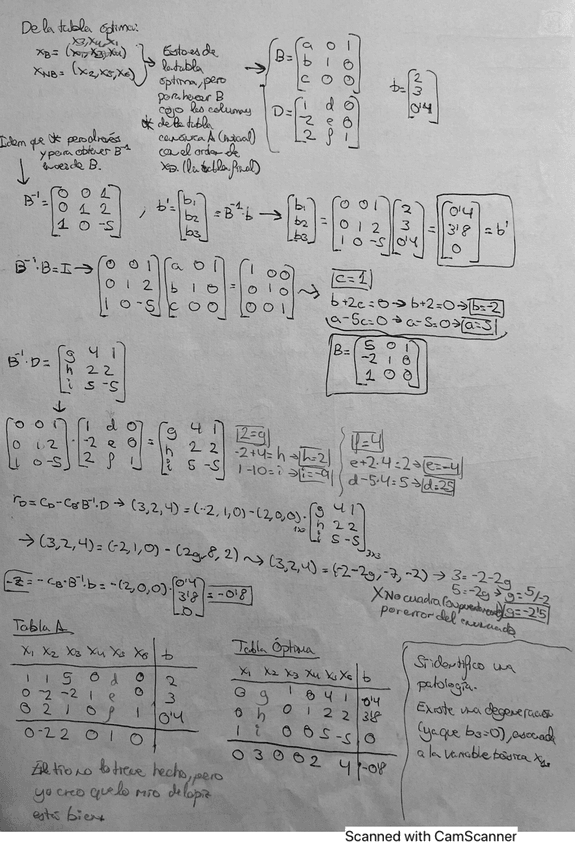 De la tabla óptima:
x_B = (x3, x4, x1)
x_NB = (x2, x5, x6)
Estos es de la tabla óptima, pero para hacer B cojo las columnas de la tabla canónica A (inicial) con el orden de x_B (la tabla final)
B = [a 0 1; b 1 0; c 0 0]
D = [1 d 0; -2 e 0; 2 f 1]
b = [2; 3; 0'4]
Idem que * pero al revés y para obtener B^-1 inversa de B.
B^-1 = [0 0 1; 0 1 2; 1 0 -5] , b' = [b1; b2; b3] = B^-1·b → [b1; b2; b3] = [0 0 1; 0 1 2; 1 0 -5] [2; 3; 0'4] = [0'4; 3'8; 0] = b'
B^-1·B = I → [0 0 1; 0 1 2; 1 0 -5] [a 0 1; b 1 0; c 0 0] = [1 0 0; 0 1 0; 0 0 1]
c=1
b+2c=0 → b+2=0 → b=-2
a-5c=0 → a-5=0 → a=5
B = [5 0 1; -2 1 0; 1 0 0]
B^-1·D = [g 4 1; h 2 2; i 5 -5]
[0 0 1; 0 1 2; 1 0 -5] · [1 d 0; -2 e 0; 2 f 1] = [g 4 1; h 2 2; i 5 -5]
2=g
-2+4=h → h=2
1-10=i → i=-9
f=4
e+2·4=2 → e=-4
d-5·4=5 → d=25
r_D = C_D - C_B·B^-1·D → (3,2,4) = (-2,1,0) - (2,0,0)· [g 4 1; h 2 2; i 5 -5]
1x3 3x3
→ (3,2,4) = (-2,1,0) - (2g,8,2) → (3,2,4) = (-2-2g,-7,-2) → 3=-2-2g
5=-2g → g=5/-2
g=-2'5
-z = -C_B·B^-1·b = -(2,0,0)· [0'4; 3'8; 0] = -0'8
X No cuadra por error del enunciado
Tabla A
x1 x2 x3 x4 x5 x6 b
1 1 5 0 d 0 2
0 -2 -2 1 e 0 3
0 2 1 0 f 1 0'4
0 -2 2 0 1 0
Tabla Óptima
x1 x2 x3 x4 x5 x6 b
0 g 1 0 4 1 0'4
0 h 0 1 2 2 3'8
1 i 0 0 5 -5 0
0 3 0 0 2 4 -0'8
Si identifico una patología.
Existe una degeneración (ya que b3=0), asociada a la variable básica x1.
El tío no lo tiene hecho, pero yo creo que lo mío de lápiz está bien
Scanned with CamScanner